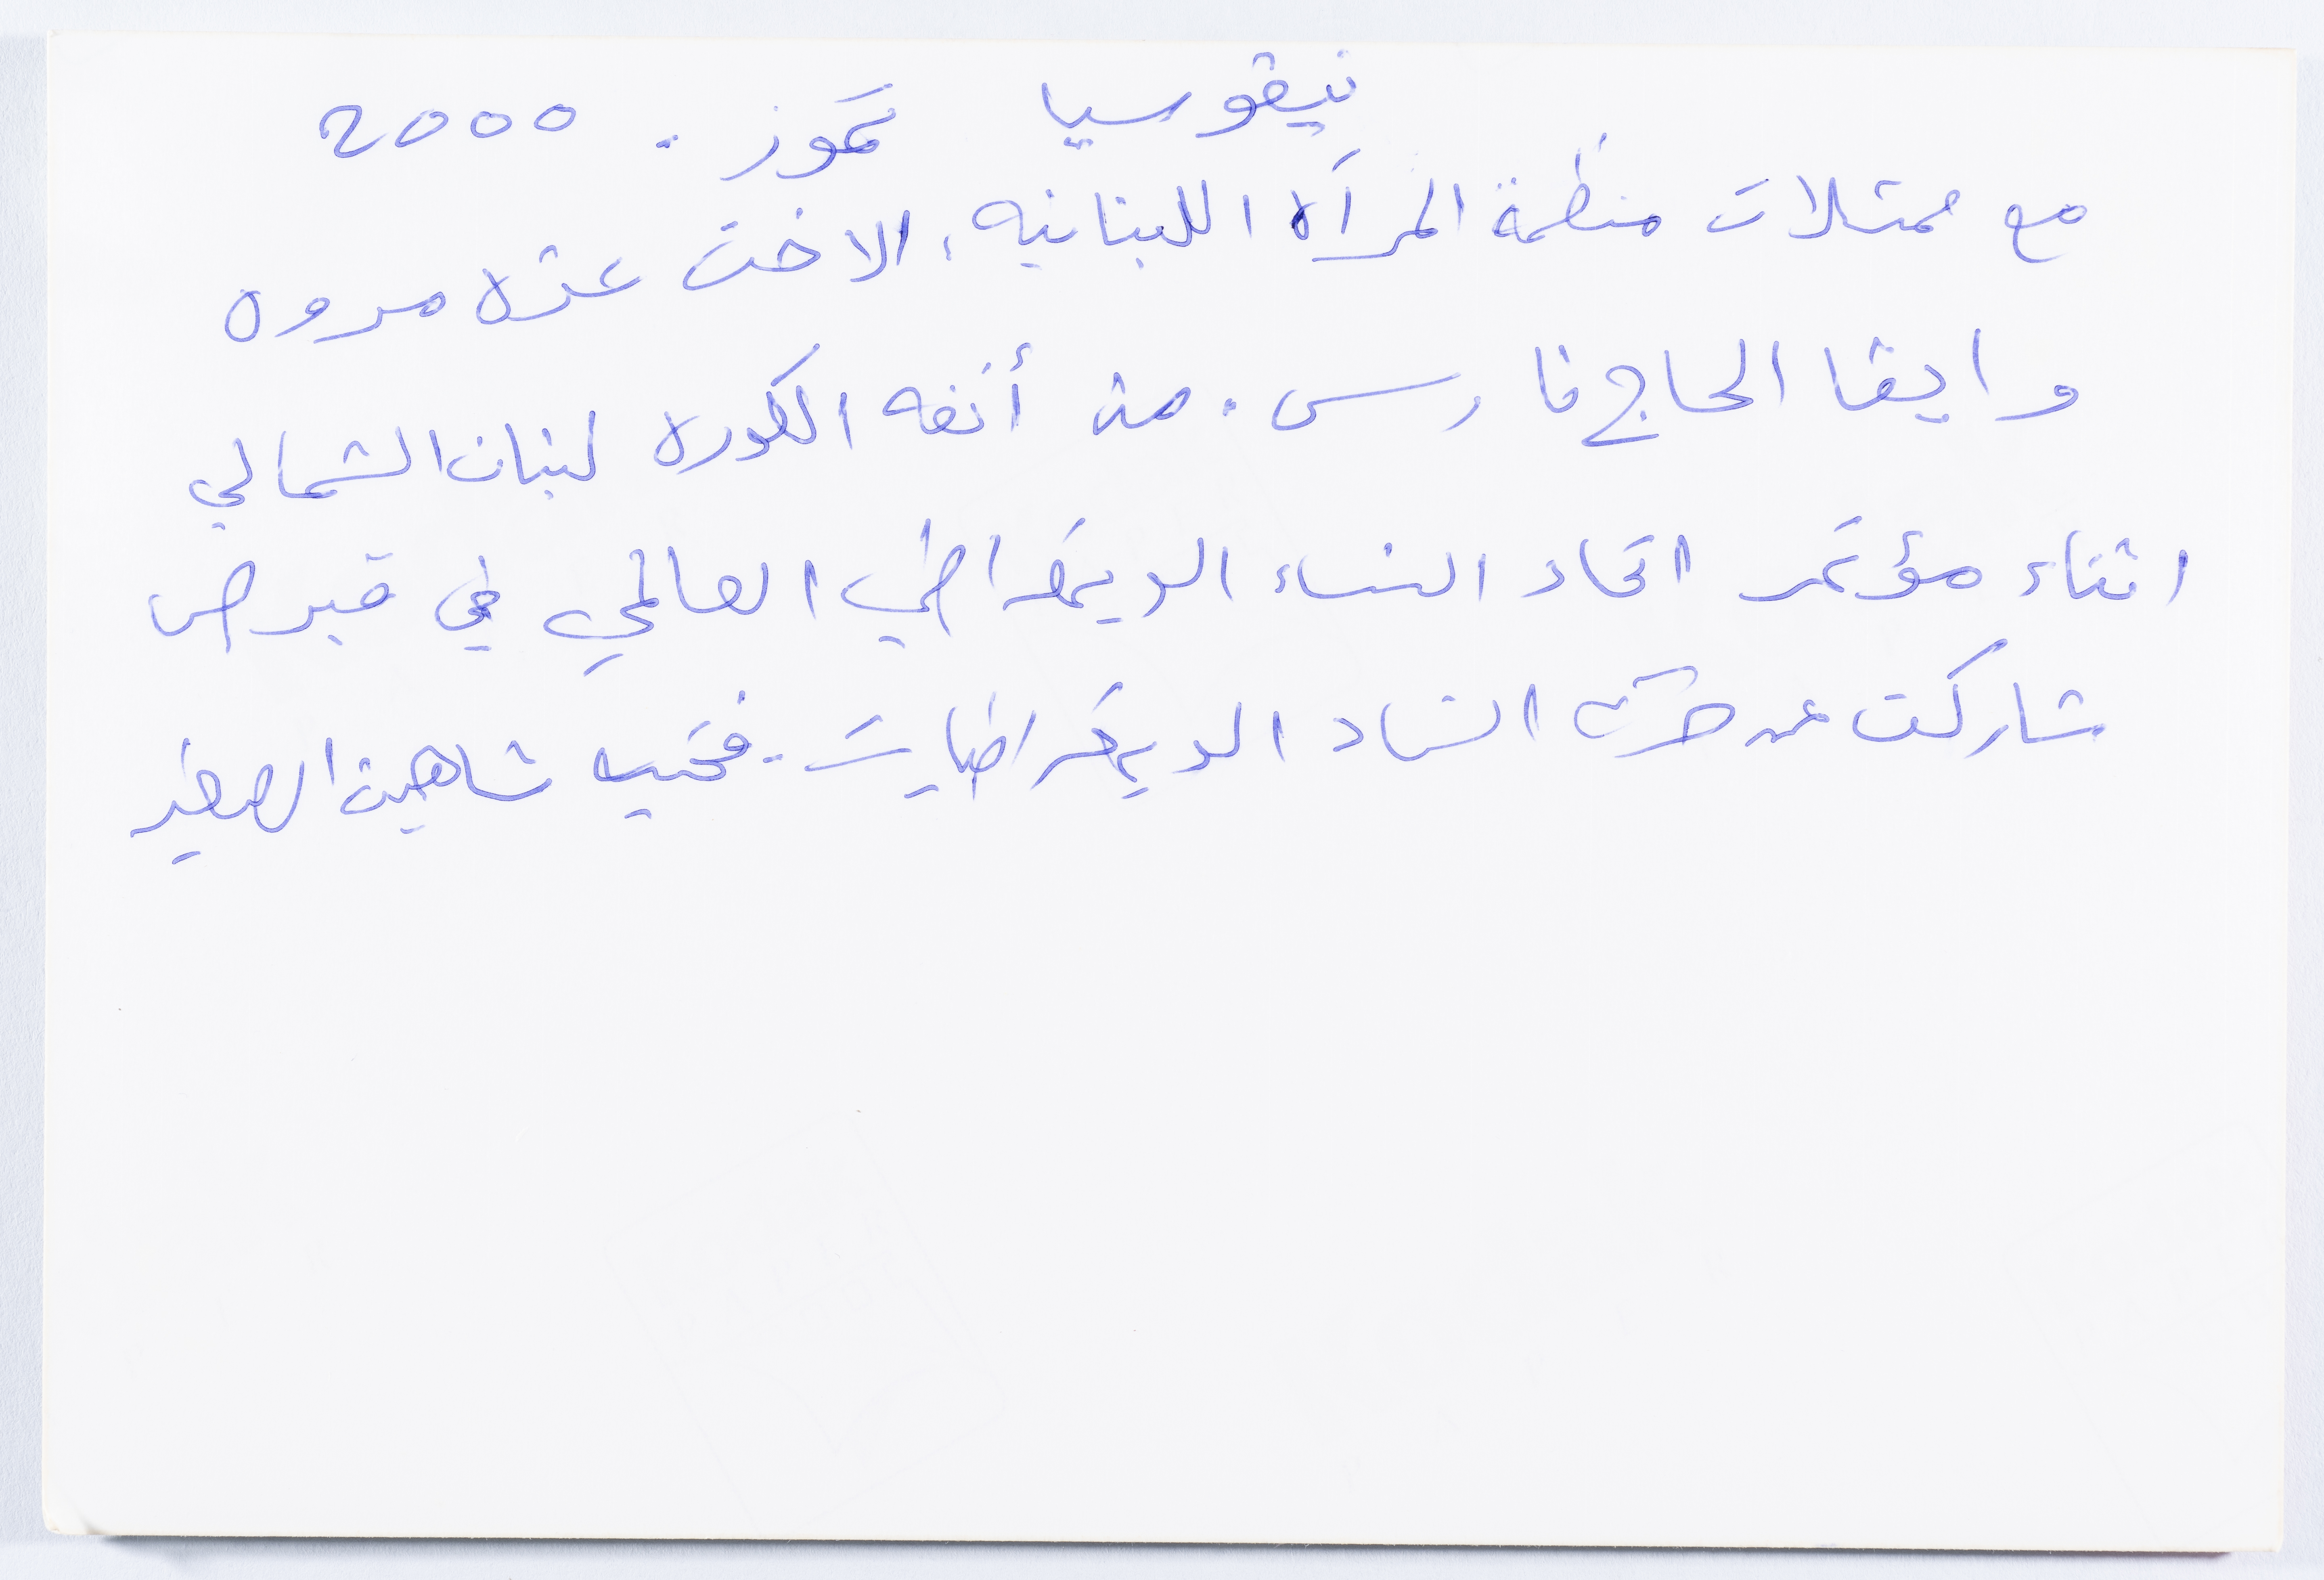 نيقوسيا تموز. 2000
مع ممثلات منظمة المرأة اللبنانيه، الاخت عزه مروه
وايفا الحاج فارس. من أنفه الكوره لبنان الشمالي
اثناء مؤتمر اتحاد النساء الديمقراطي العالمي في قبرص
شاركت عن حركة النساء الديمقراطيات - فتحيه شاهين الصغير